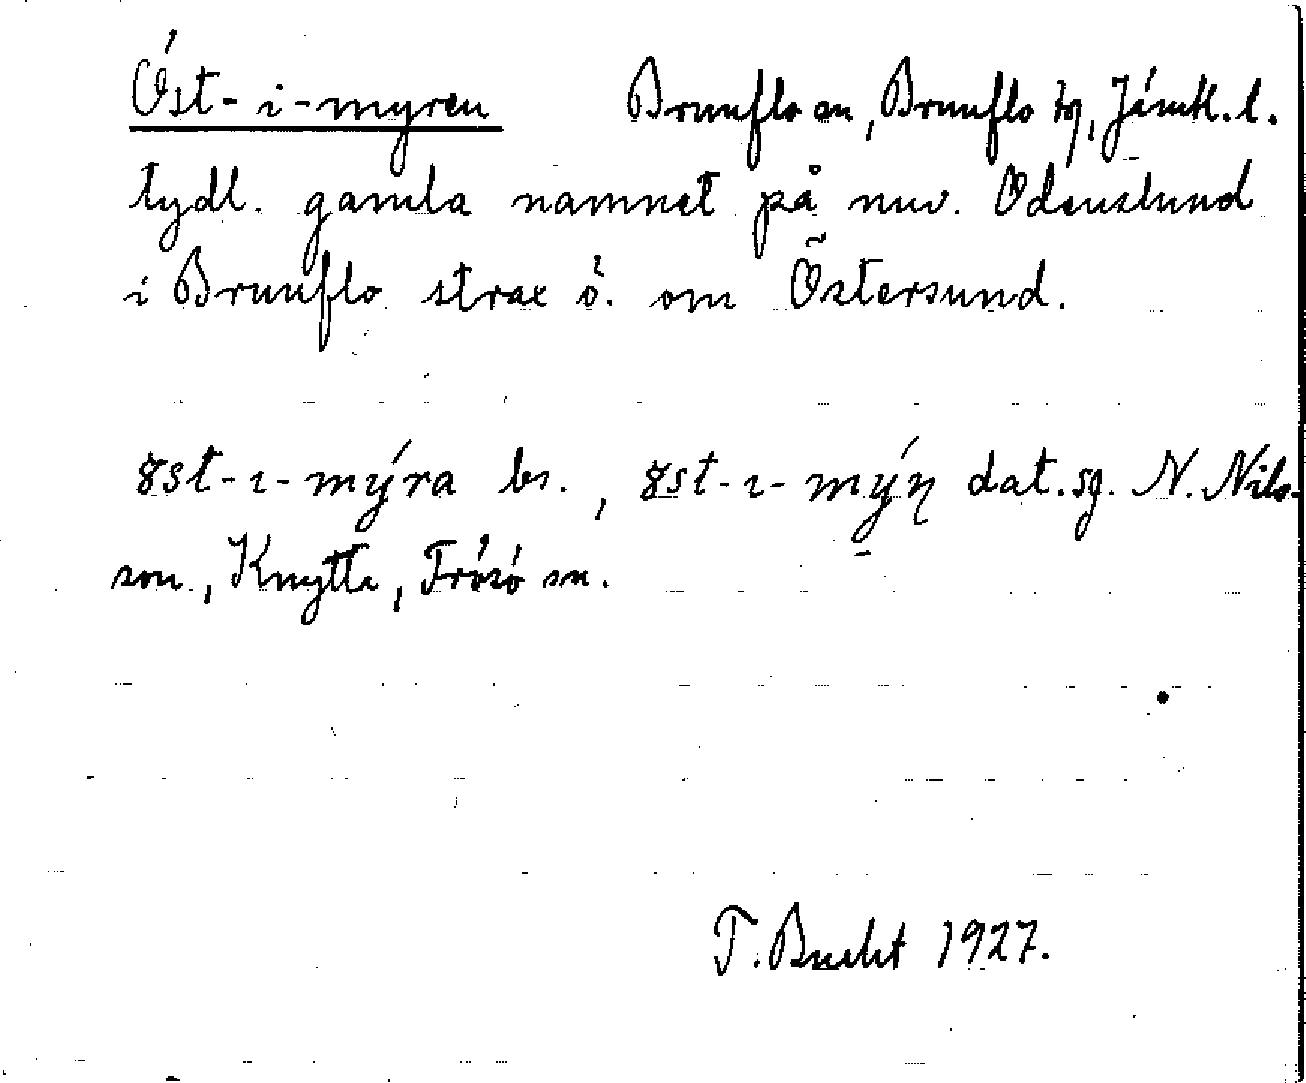 Öst-i-myren Brunflo sn, Brunflo tg, Jämtl. l.
tydl. gamla namnet på nuv. Odenslund
i Brunflo strax ö. om Östersund.
ȣst-ı-mýra bs., ȣst-ı-mýn dat. sg. N. Nils-
son, Knytta, Frösö sn.
T. Bucht 1927.